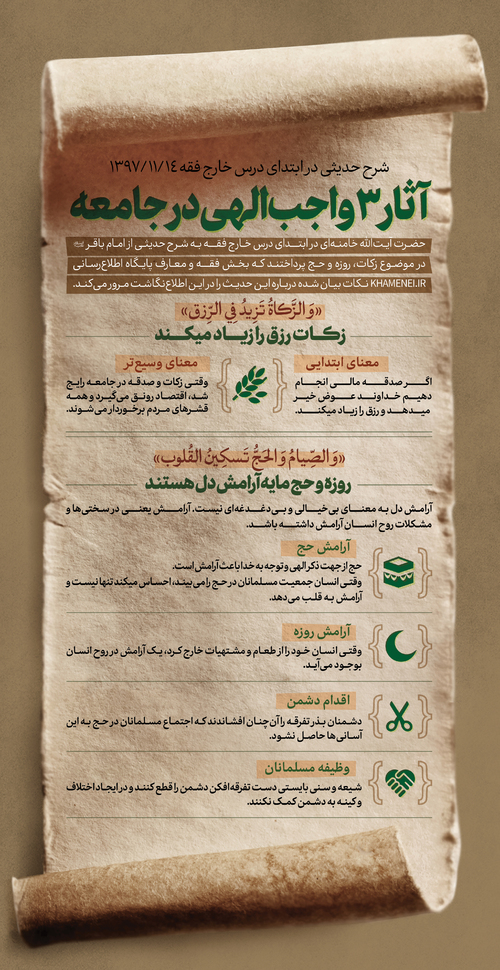 شرح حدیثی در ابتدای درس خارج فقه ۱۳۹۷/۱۱/۱۴
آثار ۳ واجب الهی در جامعه
حضرت آیت‌الله خامنه‌ای در ابتدای درس خارج فقه به شرح حدیثی از امام باقر
در موضوع زکات، روزه و حج پرداختند که بخش فقه و معارف پایگاه اطلاع‌رسانی
KHAMENEI.IR نکات بیان شده درباره این حدیث را در این اطلاع‌نگاشت مرور می‌کند.
«وَ الزَّکاةُ تَزیدُ فِي الرِّزق»
زکات رزق را زیاد میکند
معنای ابتدایی
اگر صدقه مالی انجام
دهیم خداوند عوض خیر
میدهد و رزق را زیاد میکند.
معنای وسیع‌تر
وقتی زکات و صدقه در جامعه رایج
شد، اقتصاد رونق می‌گیرد و همه
قشرهای مردم برخوردار می‌شوند.
«وَ الصِّیامُ وَ الحَجُّ تَسکینُ القُلوب»
روزه و حج مایه آرامش دل هستند
آرامش دل به معنای بی‌خیالی و بی‌دغدغه‌ای نیست، آرامش یعنی در سختی‌ها و
مشکلات روح انسان آرامش داشته باشد.
آرامش حج
حج از جهت ذکر الهی و توجه به خدا باعث آرامش است.
وقتی انسان جمعیت مسلمانان در حج را می‌بیند، احساس میکند تنها نیست و
آرامش به قلب می‌دهد.
آرامش روزه
وقتی انسان خود را از طعام و مشتهیات خارج کرد، یک آرامش در روح انسان
بوجود می‌آید.
اقدام دشمن
دشمنان بذر تفرقه را آن‌چنان افشاندند که اجتماع مسلمانان در حج به این
آسانی‌ها حاصل نشود.
وظیفه مسلمانان
شیعه و سنی بایستی دست تفرقه‌افکن دشمن را قطع کنند و در ایجاد اختلاف
و کینه به دشمن کمک نکنند.